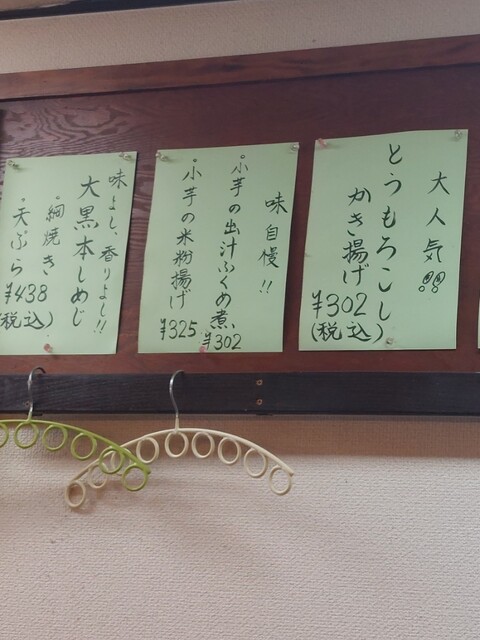 大人気!!
とうもろこし
かき揚げ
¥302
(税込)
味自慢!!
・小芋の出汁ふくめ煮
¥302
・小芋の米粉揚げ
¥325
味よし、香りよし!!
大黒本しめじ
・網焼き
・天ぷら
¥438
(税込)